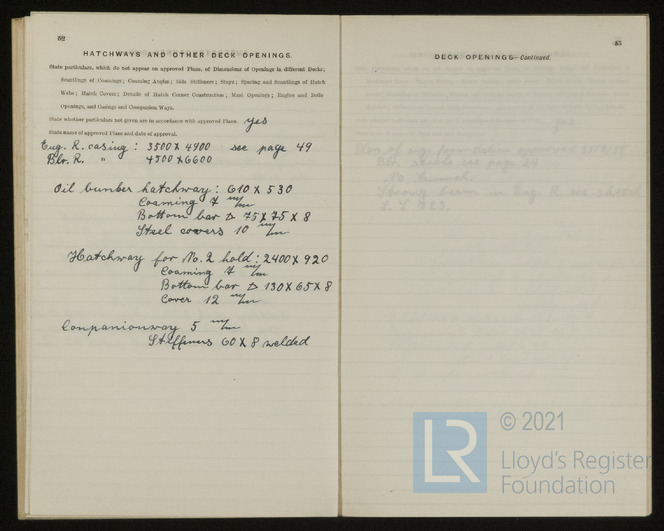 52
HATCHWAYS AND OTHER DECK OPENINGS.
State particulars, which do not appear on approved Plans, of Dimensions of Openings in different Decks;
Scantlings of Coamings; Coaming Angles; Side Stiffeners; Stays; Spacing and Scantlings of Hatch
Webs; Hatch Covers; Details of Hatch Corner Construction; Mast Openings; Engine and Boiler
Openings, and Casings and Companion Ways.
State whether particulars not given are in accordance with approved Plans. yes
State name of approved Plans and date of approval.
Eng. R. casing : 3500 X 4900 see page 49
Blr. R. " 4500 X 6600
Oil bunker hatchway : 610 X 530
Coaming 7 m/m
Bottom bar 75 X 75 X 8
Steel covers 10 m/m
Hatchway for No. 2 hold : 2400 X 920
Coaming 7 m/m
Bottom bar 130 X 65 X 8
Cover 12 m/m
Companionway 5 m/m
Stiffeners 60 X 8 welded
53
DECK OPENINGS—Continued.
LR
© 2021
Lloyd's Register
Foundation